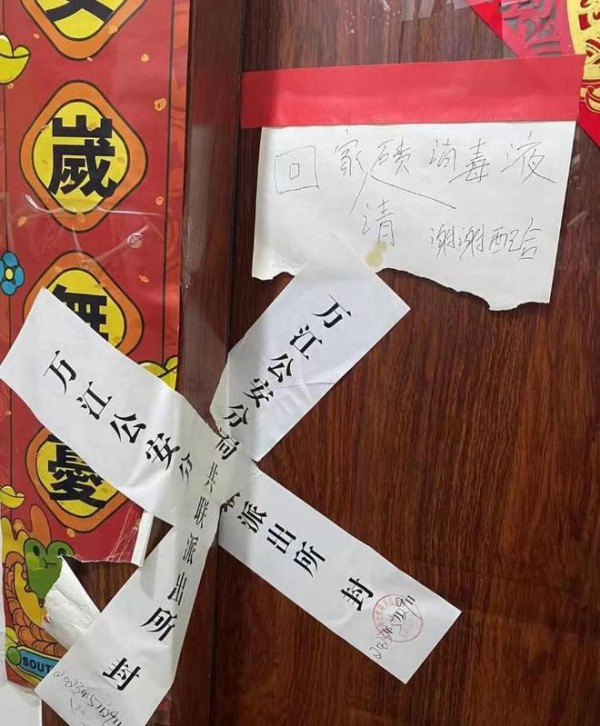 歲
無
憂
回家 消毒液
请
谢谢配合
万江公安分局共联派出所封
万江公安分
派出所封
SOUT